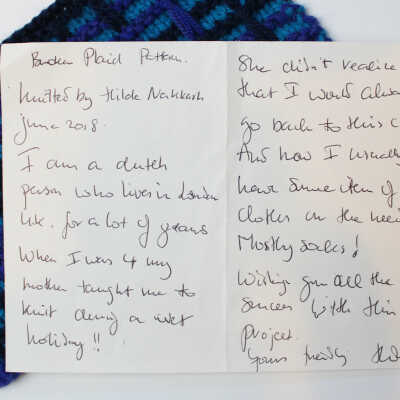 Broken Plaid Pattern.
knitted by Hilda Nakkash
june 2018.
I am a dutch
person who lives in London
UK. for a lot of years
When I was 4 my
mother taught me to
knit during a wet
holiday !!
She didn't realize
that I would alwa
go back to this c
And now I usually
have some item of
clothes on the need
Mostly socks!
Wishing you all the
success with this
project.
yours truly